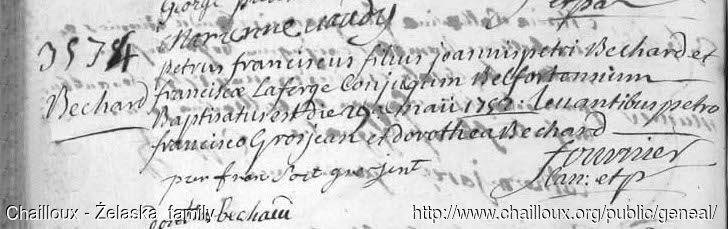 George
Marienne naudy
3574 petrus franciscus filius joannis petri Bechard et
Bechard franciscæ Laferge Conjugum Belfortensium
Baptisatus est die 29a maii 1752: Levantibus petro
francisco Grosjean et dorothea Bechard
fournier
Can: et p
pier fran
Bechard
Chailloux - Żelaska family
http://www.chailloux.org/public/geneal/